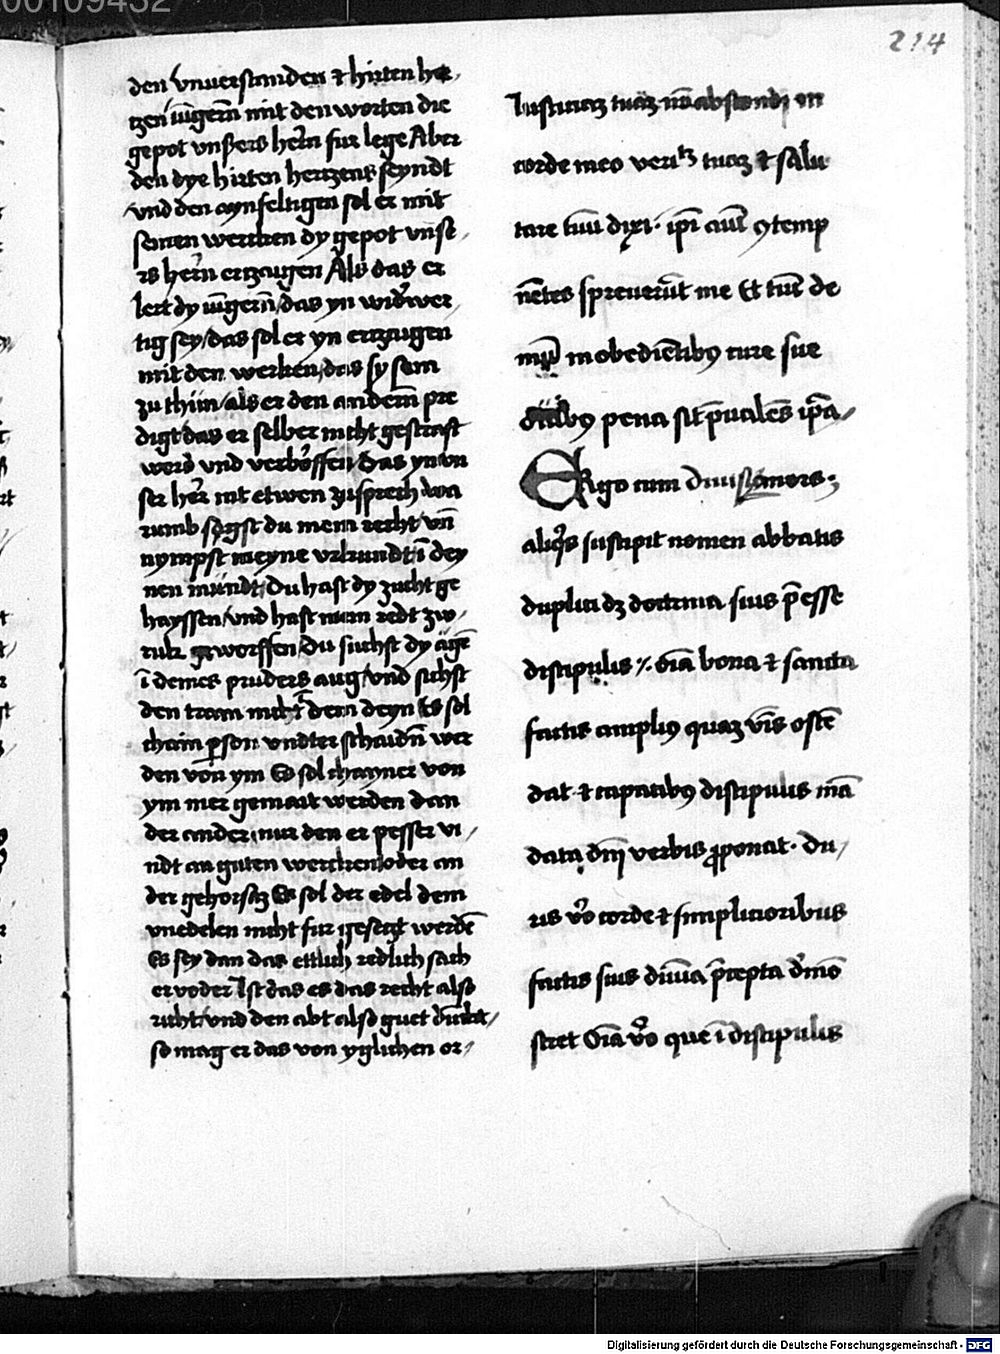 214
den vnuerstanden vnd hirten her
tzen iūgern̄ mit den worten die
gepot vnßers hern̄ fur lege Aber
den dye hirten hertzens seyndt
vnd den aynfeltigen sol er mit
seinen wercken dy gepot vnse
rs hern̄ ertzaugen Als das er
lert dy iūgern̄ das yn wider wer
tig sey das sol er yn ertzaugen
mit den werken das sy sein
zu thün als er den andern̄ pre
digt das er selber nicht gestraft
wers vnd verborffen Das yn vn
ser her nit etwen zu sprech wa
rumb sagst du mein recht vn̄
nympst meyne vrkundt ī dey
nen mündt Du hast dy zucht ge
hayssen vnd hast mein redt zw
ruk geworffen du sichst dy agē
ī deines pruders aug vnd sichst
den tram nicht ī dem deyn Es sol
chain person vndterschaidn̄ wer
den von ym Es sol chayner von
ym mer gemait werden dan
der ander nur den er pesser vi
ndt an guten wercken oder an
der gehorsatz Es sol der edel dem
vnedelen nicht fur gesetzt werdē
Es sey dan das ettlich redlich sach
er voder Ist das es das recht also
richt vnd den abt also guet dunckt
so mag er das von yglichen or
Iusticiaz tuaz nō abscondi in
corde meo veritatē tuaz et salu
tare tuū dixi. ip̄i autē ꝯtemp
nētes spreuerūt me Et tūc de
mū inobediētibꝫ cure sue
ouibꝫ pena sit p̄ualēs ip̄a
ERgo cum diuis mors
aliq̄s suscipit nomen abbatis
duplici dꝫ doctrina suis p̄esse
discipulis .i. oīa bona et sancta
factis amplius quaz vb̄is ostē
dat et capacibꝫ discipulis mā
data dn̄i verbis ꝓponat. Du
ris vō corde et simplicioribus
factis suis diuīa p̄cepta demō
stret Oīa vō que ī discipulis
Digitalisierung gefördert durch die Deutsche Forschungsgemeinschaft - DFG